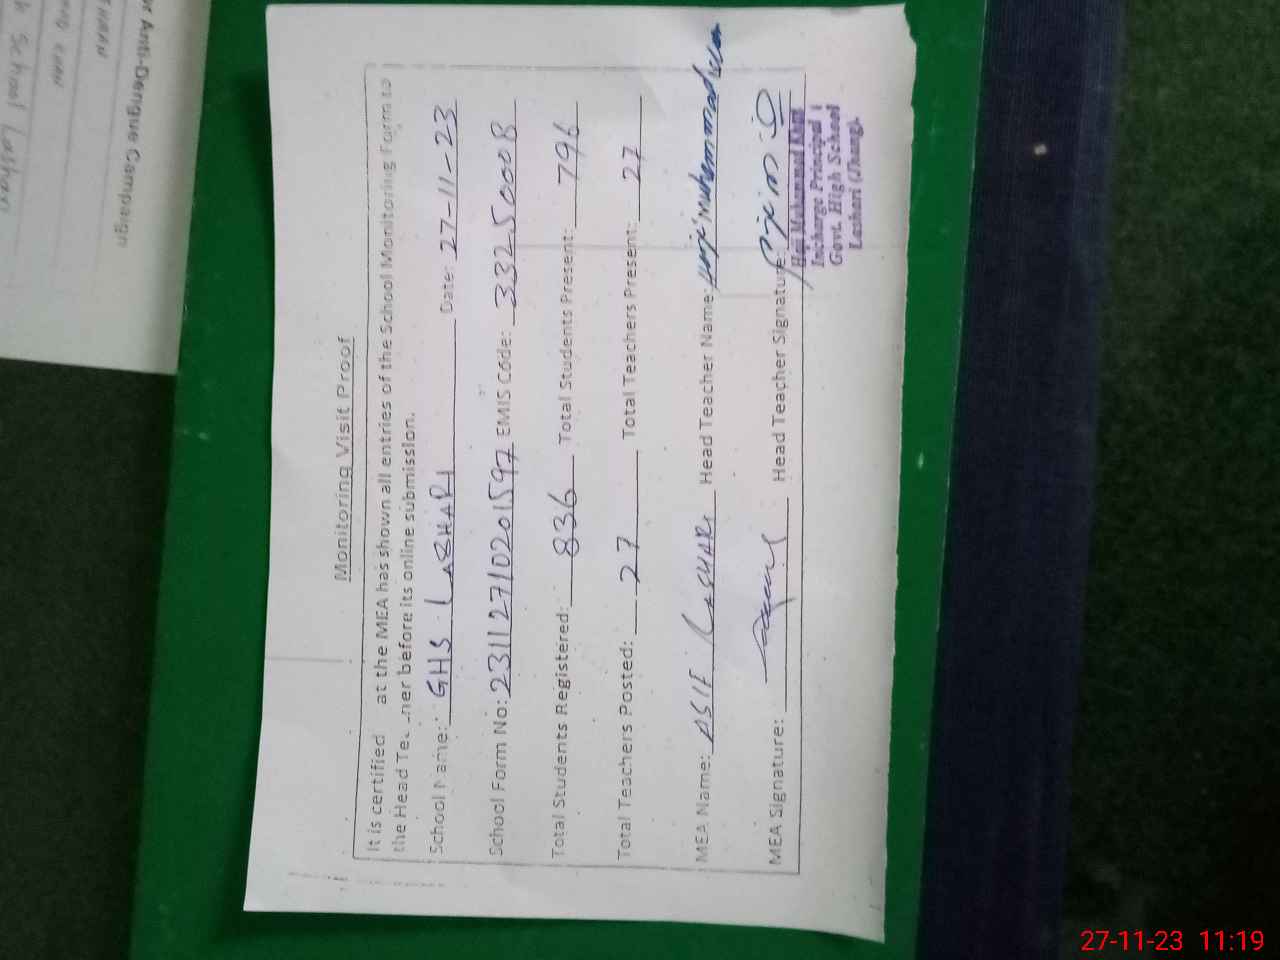 Monitoring Visit Proof
It is certified at the MEA has shown all entries of the School Monitoring Form to
the Head Te ner before its online submission.
School Name: GHS LASHARI Date: 27-11-23
School Form No: 23112710201597 EMIS Code: 33250008
Total Students Registered: 836 Total Students Present: 796
Total Teachers Posted: 27 Total Teachers Present: 27
MEA Name: ASIF LASHARI Head Teacher Name: Muhammad
MEA Signature: Head Teacher Signature:
Haji Muhammad
Incharge Principal
Govt. High School
Lashari (Jhang).
Anti-Dengue Campaign
School Lashari
27-11-23 11:19